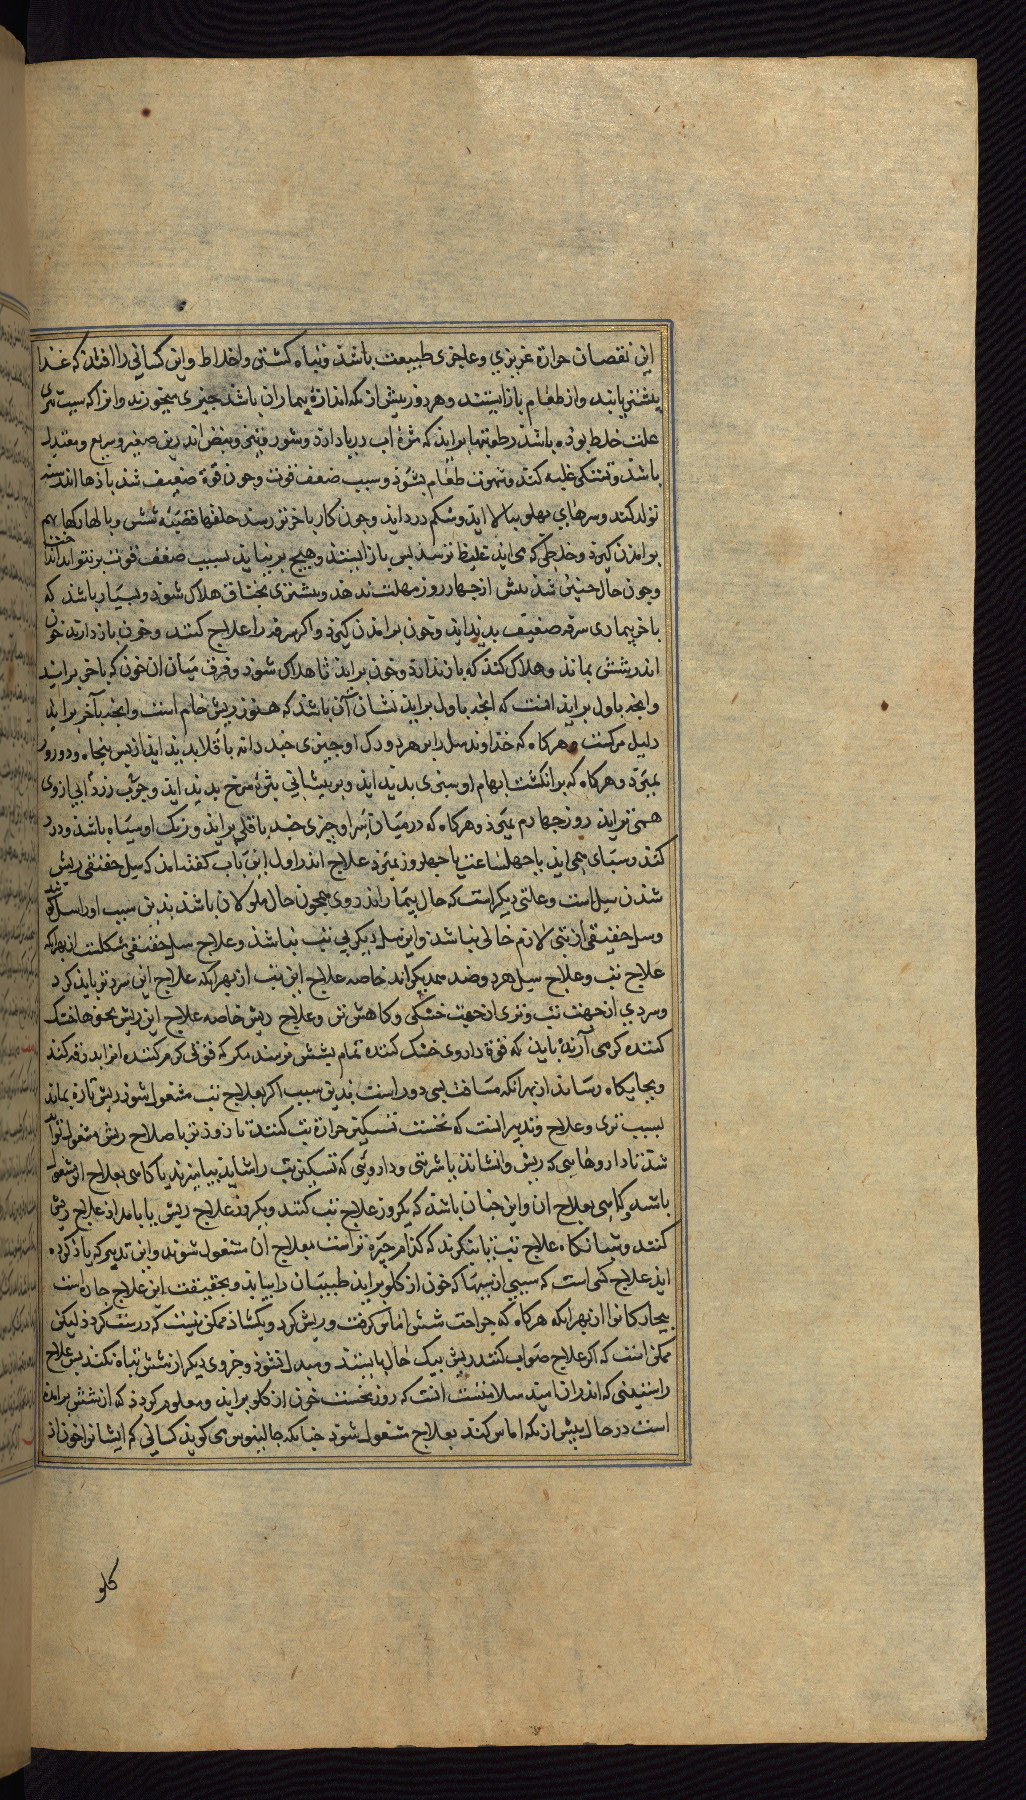 این نقصان حرارة غریزی و عاجزی طبیعت باشذ و تباه کشتن واخلاط واین کسانی را افتذ که غذا
بیشتر یابند واز طعام باز ایستند وهر روز بیش از انکه اندازۀ بیماران باشد جیزی میخورند وانرا که سبب تری
علت خلط بوده باشد رطوبتها براید که مزۀ اب دریا دارد وشور وبنض اندرین صغیر وسریع ومعتدل
باشد وتشنکی غلبه کند وشهوت طعام بشوذ وسبب ضعف قوت وجون قوة ضعیف شذ باذها اندر
تولد کند وسرهای بهلو ببالا اید وشکم درد اید وجون کار باخرتر رسد حلقها قصبۀ شش وبا لهارکها بهم
برامذن کیرد وخلطی که می اید غلیظ ترسد بس باز ایستد وهیج برنیاید بسبب ضعف قوت برنتواند انداخت
وجون حال جنین شد بیش از جهار روز مهلت ندهد وبیشتری بخناق هلاک شود وبسیار باشد که
باخر بیماری سرفه ضعیف بدید اید وخون برامدن کیرد واکر سرفه را علاج کنند وخون باز دارند خون
اندر شش بماند وهلاک کند که باز ندارد وخون براید تا هلاک شود وفرق میان ان خون که باخر براید
وانجه باول براید انست که انجه باول براید نشان آن باشد که هنوز ریش خام است وانجه بآخر براید
دلیل مرکست وهرکاه که خداوند سل را بر هر دو او جیزی جند دانه باقلا بدید اید از بس بنجاه ودو روز
بمیرد وهرکاه که برانکشت ابهام او سبزی بدید اید وبر بیشانی بثرۀ سرخ بدید اید وجون زرداب از وی
همی براید روز جهارم بمیرد وهرکاه که در میان سر او جیزی جند باقلی براید ورنک او سیاه باشد ودرد
کند وسبات می اید باجهل ساعت یا جهل روز بمیرد علاج اندر اول این باب کفته امد که سل حقیقی ریش
شدن سل است وعلتی دیکر است که حال بیمار اندر وی همجون حال مسلولان باشد بدین سبب او را سل کویند
وسل حقیقی از تبی لازم خالی نباشد واین سل دیکر بی تب نباشد وعلاج سل حقیقی مشکلت از بهر انکه
علاج تب وعلاج سل هر دو ضد یکدیکراند خاصه علاج این تب از بهر انکه علاج این سرد تر باید کرد
وسردی از جهت تب وتری از جهت خشکی وکاهش تن وعلاج ریش خاصه علاج این ریش بجیزها خشک
کننده کرمی آرنده باید که قوة داروی خشک کننده تمام بشش نرسد مکر که قوتی کرم کننده انرا بدرقه کند
وبجایکاه رساند از بهر انکه مسافت بس دور است بدین سبب اکر بعلاج تب مشغول شوند ریش تازه بماند
بسبب تری وعلاج وتدبیر انست که نخست تسکین حرارة تب کنند تا زوذتر باصلاح ریش مشغول توان
شد تا داروهایی که ریش وانشاند باشربتی وداروئی که تسکین تب را شاید بیامیزند یا کاهی بعلاج این مشغول
باشد وکاهی بعلاج ان واین جنان باشد که یکروز علاج تب کنند ویکروز علاج ریش یا بامداد علاج ریش
کنند وشبانکاه علاج تب یا بنکرند که کدام جیره تر است بعلاج ان مشغول شوند واین تدبیر که یاد کرده
اید علاج کسی است که سببی از سببها که خون از کلو براید طبیبان را بیاید وبحقیقت این علاج جاره است
بیجارکانرا از بهر انکه هرکاه که جراحت شش اماس کرفت وریش کرد ویکشاد ممکن نیست که درست کردد لیکن
ممکن است که اکر علاج صواب کنند ریش بیک حال بایستد وبتر نشود وجزوی دیکر از شش تباه نکند بس علاج
راستینی که اندر ان امید سلامتست انست که روز نخست خون از کلو براید ومعلوم کردد که از شش برامده
است در حال بیش از انکه اماس کند بعلاج مشغول شود جنانکه جالینوس می کوید کسانی که ایشانرا خون از
کلو